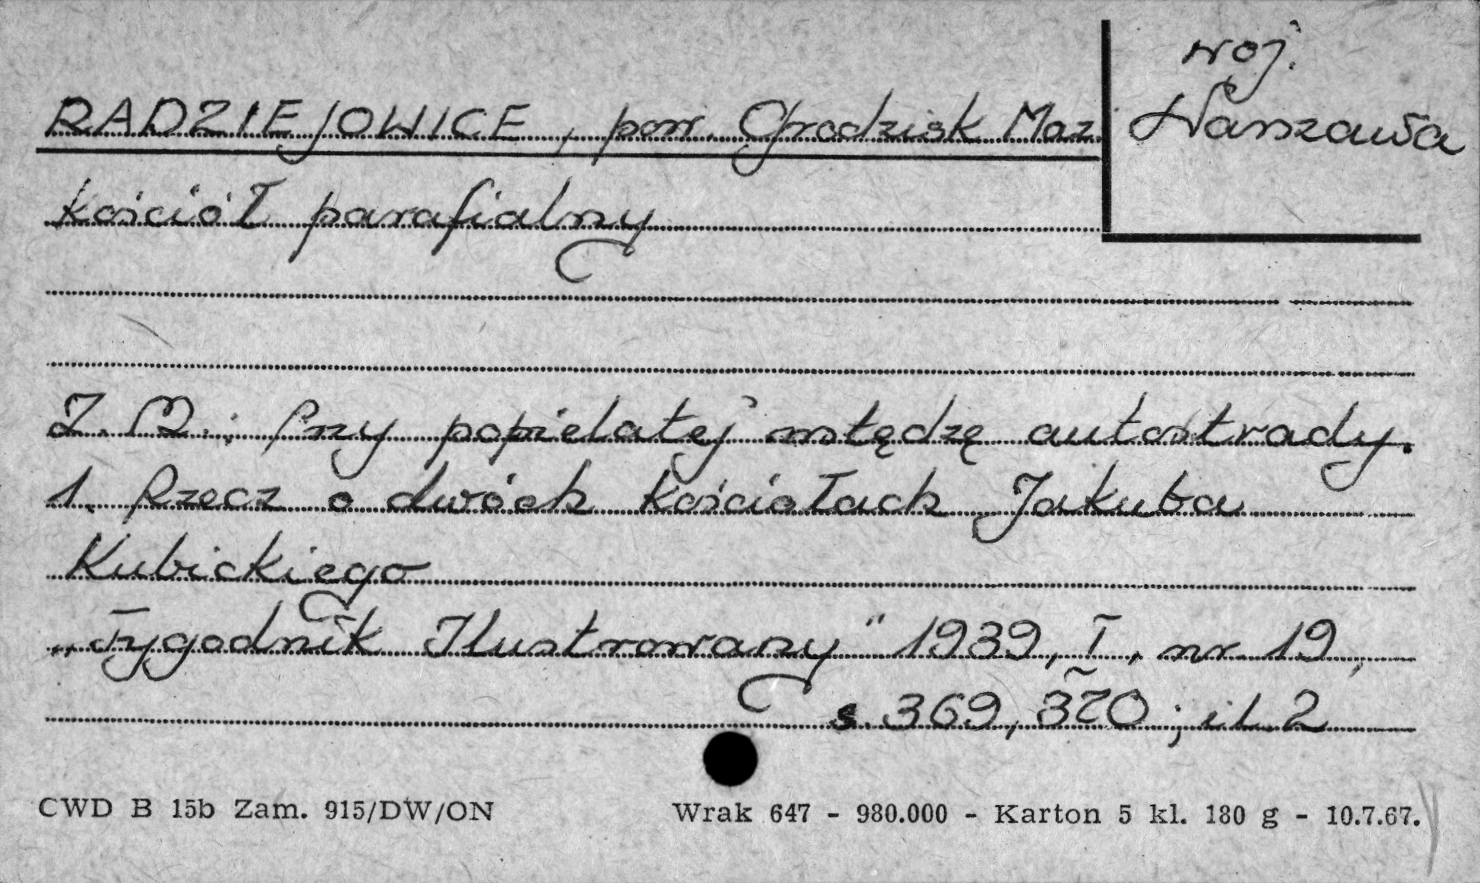 woj.
Warszawa
RADZIEJOWICE, pow. Grodzisk Maz.
kościół parafialny
Z. M.: Przy popielatej wstędze autostrady.
1. Rzecz o dwóch kościołach Jakuba
Kubickiego
„Tygodnik Ilustrowany" 1939, I, nr 19,
s. 369, 370; il. 2
CWD B 15b Zam. 915/DW/ON
Wrak 647 - 980.000 - Karton 5 kl. 180 g - 10.7.67.